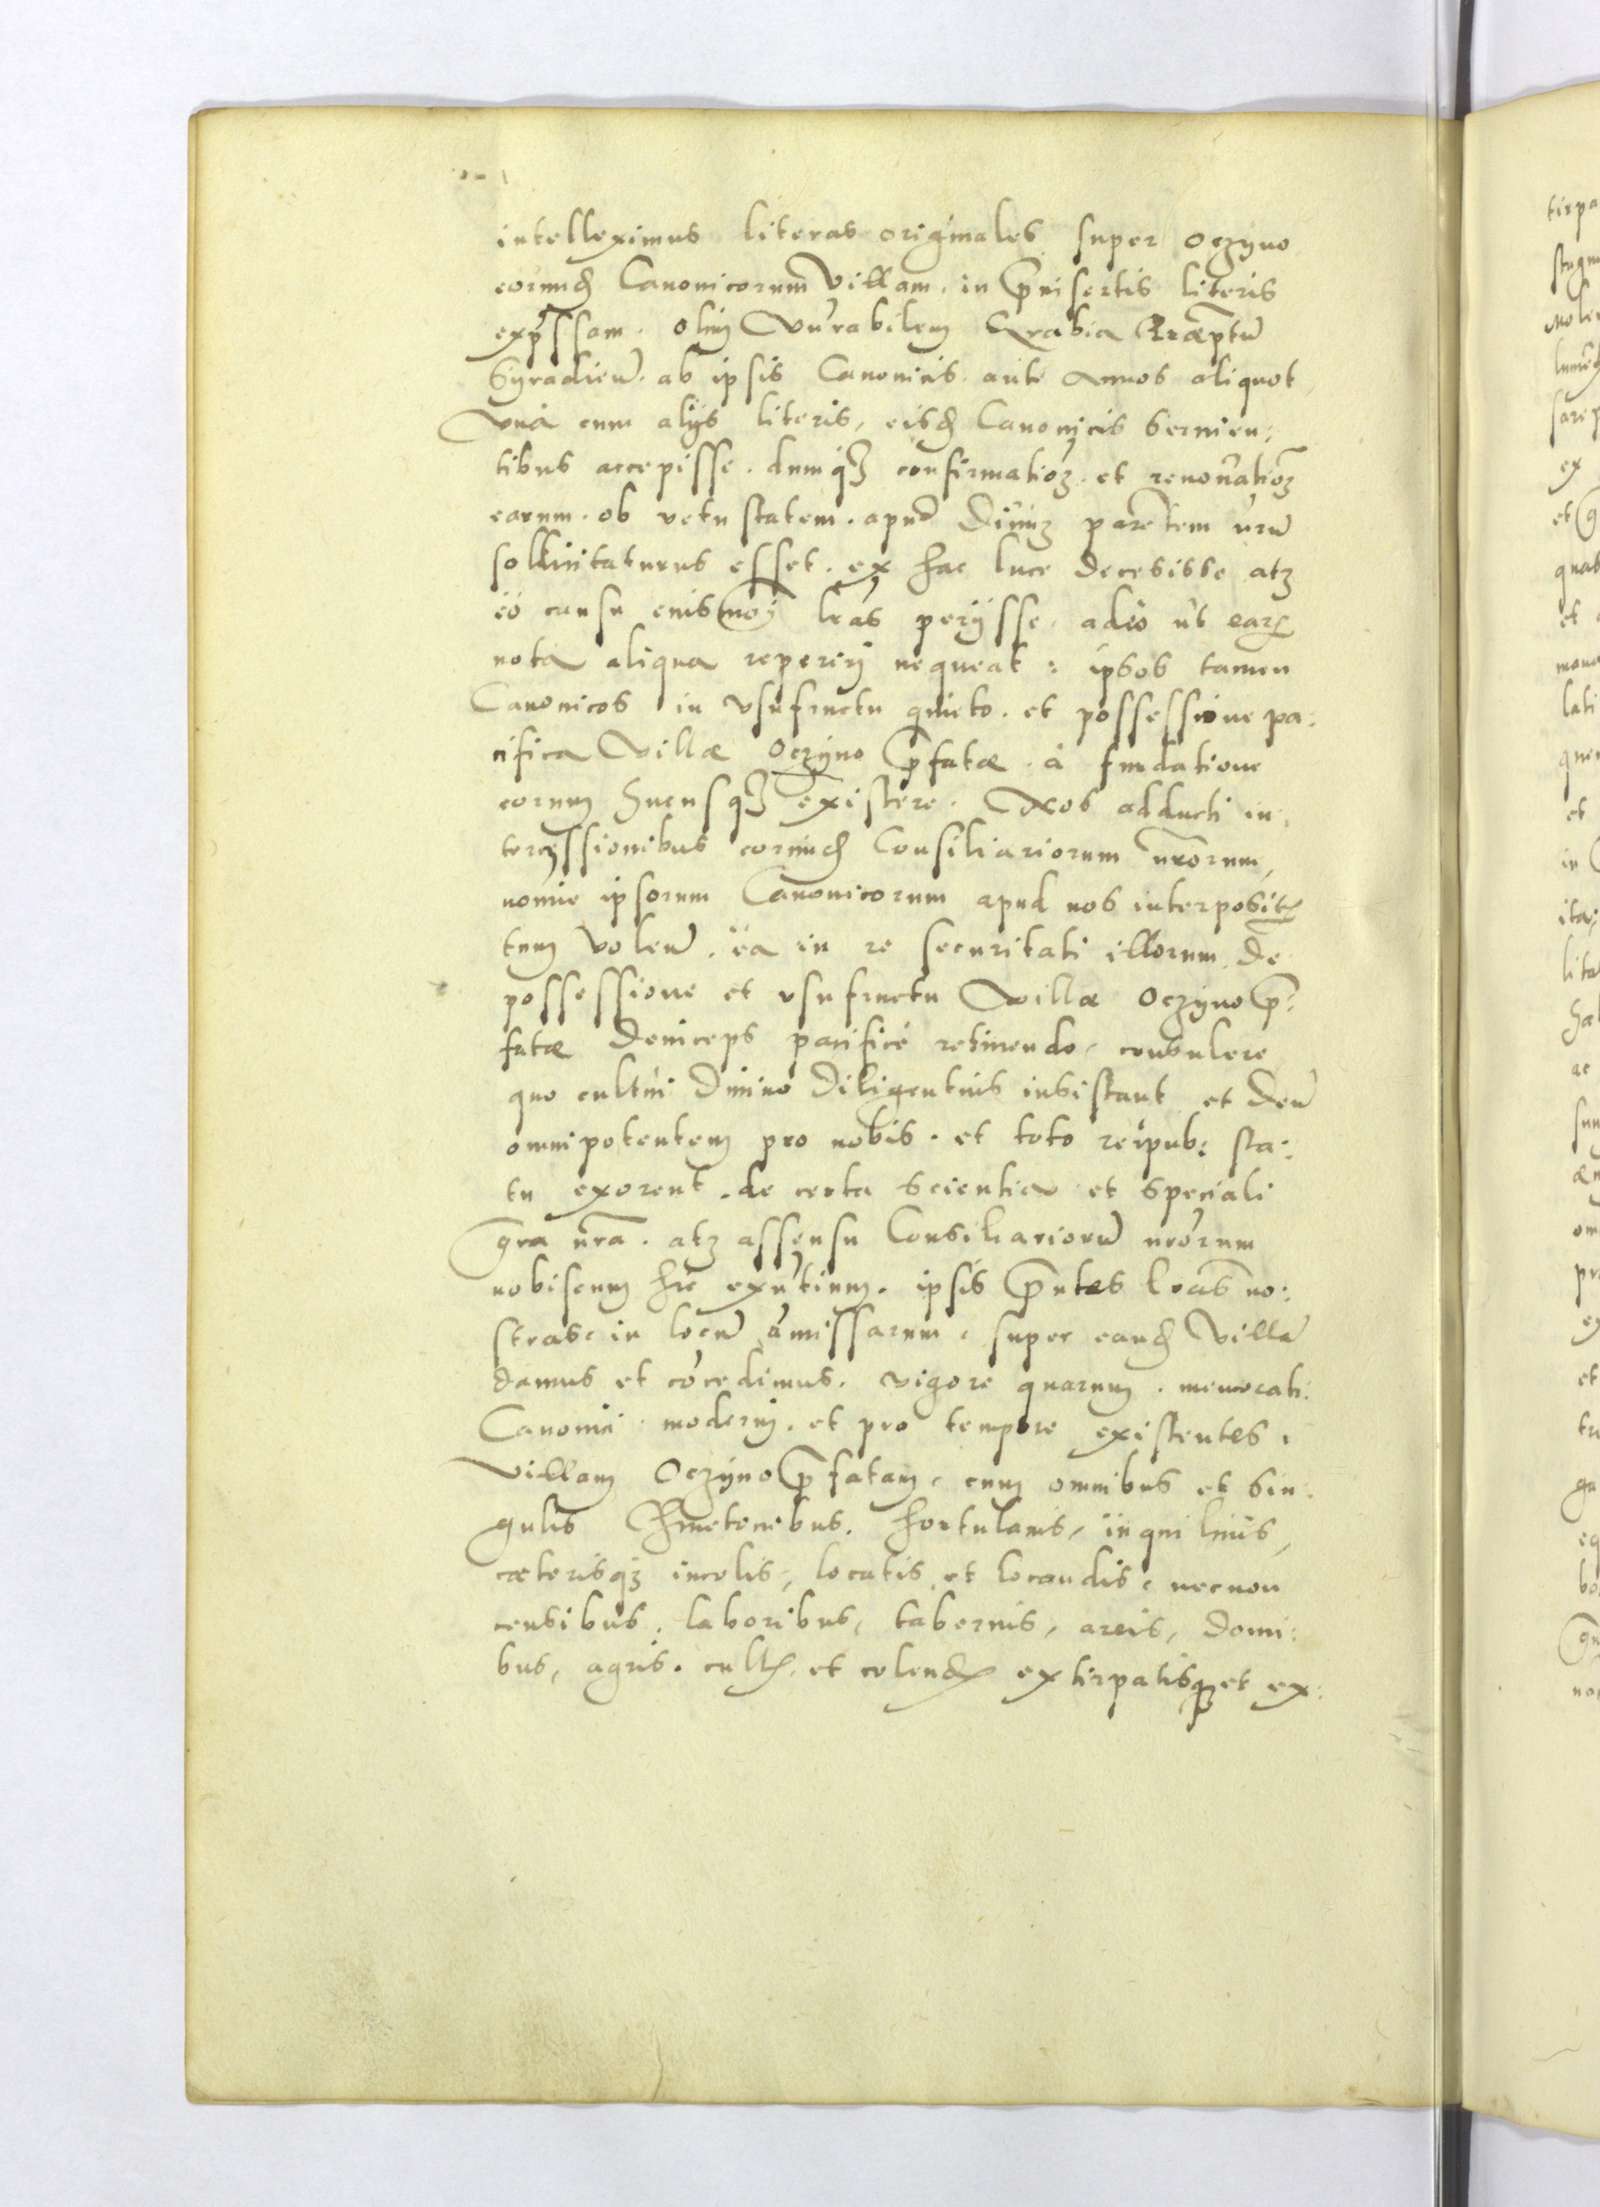 intelleximus literas originales super Oczyno
eorund Canonicorum Villam. in p̄insertis literis
exp̄ssam. olim Vn̄rabilem Grabia Præptū
Syradien̄. ab ipsis Canonicis. ante annos aliquot
Vna cum alijs literis, eisd Canonicis seruien:
tibus accepisse. dumq3 confirmatio3. et renouatio3
earum. ob vetustatem. apud Diuu3 parentem nr̄ū
sollicitaturus esset. ex hac luce decesisse at3
eo causu eiusmoi lr̄as perijsse. adeo ut ear
nota aliqua reperirj nequeat: ipsos tamen
Canonicos in vsufructu quieto. et possessione pa:
cifica Villæ Oczyno p̄fatæ. à fundatione
eorum hucusq3 existere. Nos adducti in:
tercessionibus eorund Consiliariorum nr̄orum,
nomie ipsorum Canonicorum apud nos interposit
tum volen̄. ea in re securitati illorum de
possessione et vsufructu Villæ Oczyno p̄:
fatæ deinceps pacificè retinendo, consulere
quo cultui Diuino diligentius insistant et deū
omnipotentem pro nobis. et toto reipub: sta:
tu exorent. de certa scientia et speciali
gr̄a nr̄a. at3 assensu Consiliariorū nr̄orum
nobiscum hic exn̄tium. ipsis p̄ntes lr̄as no:
stras in locū amissarum, super eand Villā
damus et cōcedimus. vigore quarum. memorati
Canonici modernj. et pro tempore existentes,
Villam Oczyno p̄fatam, cum omnibus et sin:
gulis Kmetonibus. hortulanis, inquilinis,
cæterisq3 incolis, locatis et locandis, necnon
censibus, laboribus, tabernis, areis, domi:
bus, agris. cult. et colend extirpatisq3 et ex: